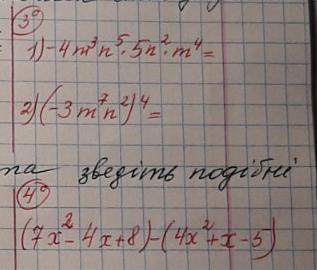 3°
1) -4m³n⁵·5n²·m⁴=
2) (-3m⁷n²)⁴=
та зведіть подібні
4°
(7x²-4x+8)-(4x²+x-5)